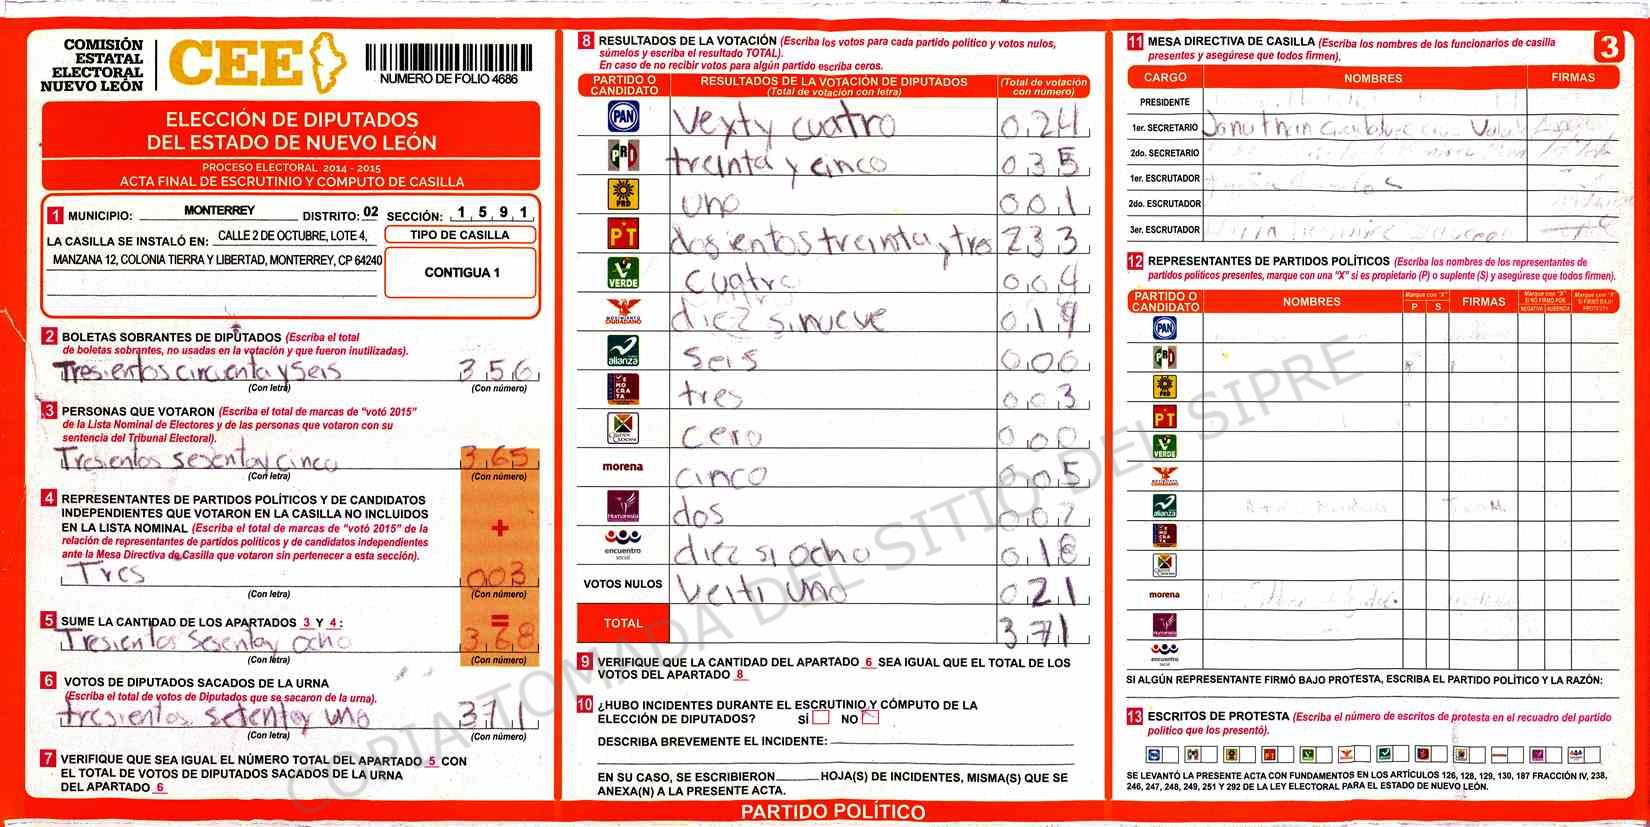 COMISIÓN
ESTATAL
ELECTORAL
NUEVO LEÓN
CEE
NUMERO DE FOLIO 4686
ELECCIÓN DE DIPUTADOS
DEL ESTADO DE NUEVO LEÓN
PROCESO ELECTORAL 2014 - 2015
ACTA FINAL DE ESCRUTINIO Y CÓMPUTO DE CASILLA
1 MUNICIPIO: MONTERREY DISTRITO: 02 SECCIÓN: 1 5 9 1
LA CASILLA SE INSTALÓ EN: CALLE 2 DE OCTUBRE, LOTE 4,
MANZANA 12, COLONIA TIERRA Y LIBERTAD, MONTERREY, CP 64240
TIPO DE CASILLA
CONTIGUA 1
2 BOLETAS SOBRANTES DE DIPUTADOS (Escriba el total
de boletas sobrantes, no usadas en la votación y que fueron inutilizadas).
Tresientos circuenta y seis 356
(Con letra) (Con número)
3 PERSONAS QUE VOTARON (Escriba el total de marcas de "votó 2015"
de la Lista Nominal de Electores y de las personas que votaron con su
sentencia del Tribunal Electoral).
Tresientos sesenta y cinco 365
(Con letra) (Con número)
4 REPRESENTANTES DE PARTIDOS POLÍTICOS Y DE CANDIDATOS
INDEPENDIENTES QUE VOTARON EN LA CASILLA NO INCLUIDOS
EN LA LISTA NOMINAL (Escriba el total de marcas de "votó 2015" de la
relación de representantes de partidos políticos y de candidatos independientes
ante la Mesa Directiva de Casilla que votaron sin pertenecer a esta sección).
+
Tres 003
(Con letra) (Con número)
5 SUME LA CANTIDAD DE LOS APARTADOS 3 Y 4 :
=
Tresientos sesenta y ocho 368
(Con letra) (Con número)
6 VOTOS DE DIPUTADOS SACADOS DE LA URNA
(Escriba el total de votos de Diputados que se sacaron de la urna).
tresientos setenta y uno 371
(Con letra) (Con número)
7 VERIFIQUE QUE SEA IGUAL EL NÚMERO TOTAL DEL APARTADO 5 CON
EL TOTAL DE VOTOS DE DIPUTADOS SACADOS DE LA URNA
DEL APARTADO 6
8 RESULTADOS DE LA VOTACIÓN (Escriba los votos para cada partido político y votos nulos,
súmelos y escriba el resultado TOTAL).
En caso de no recibir votos para algún partido escriba ceros.
PARTIDO O CANDIDATO RESULTADOS DE LA VOTACIÓN DE DIPUTADOS (Total de votación con letra) (Total de votación con número)
PAN Veyty cuatro 024
PRI treinta y cinco 035
PRD uno 001
PT dosientos treinta y tres 233
VERDE cuatro 004
MOVIMIENTO CIUDADANO diez sinueve 019
alianza seis 006
DEMOCRATA tres 003
cero 000
morena cinco 005
Humanista dos 002
encuentro social diez si ocho 018
VOTOS NULOS Veiti uno 021
TOTAL 371
9 VERIFIQUE QUE LA CANTIDAD DEL APARTADO 6 SEA IGUAL QUE EL TOTAL DE LOS
VOTOS DEL APARTADO 8
10 ¿HUBO INCIDENTES DURANTE EL ESCRUTINIO Y CÓMPUTO DE LA
ELECCIÓN DE DIPUTADOS? SÍ NO
DESCRIBA BREVEMENTE EL INCIDENTE:
EN SU CASO, SE ESCRIBIERON HOJA(S) DE INCIDENTES, MISMA(S) QUE SE
ANEXA(N) A LA PRESENTE ACTA.
PARTIDO POLÍTICO
3
11 MESA DIRECTIVA DE CASILLA (Escriba los nombres de los funcionarios de casilla
presentes y asegúrese que todos firmen).
CARGO NOMBRES FIRMAS
PRESIDENTE
1er. SECRETARIO Jonathan
2do. SECRETARIO
1er. ESCRUTADOR
2do. ESCRUTADOR
3er. ESCRUTADOR
12 REPRESENTANTES DE PARTIDOS POLÍTICOS (Escriba los nombres de los representantes de
partidos políticos presentes, marque con una "X" si es propietario (P) o suplente (S) y asegúrese que todos firmen).
PARTIDO O CANDIDATO NOMBRES Marque con "X" P S FIRMAS Marque con "X" SI NO FIRMÓ POR NEGATIVA AUSENCIA Marque con "X" SI FIRMÓ BAJO PROTESTA
PAN
PRI
PRD
PT
VERDE
MOVIMIENTO CIUDADANO
alianza
DEMOCRATA
morena
Humanista
encuentro social
SI ALGÚN REPRESENTANTE FIRMÓ BAJO PROTESTA, ESCRIBA EL PARTIDO POLÍTICO Y LA RAZÓN:
13 ESCRITOS DE PROTESTA (Escriba el número de escritos de protesta en el recuadro del partido
político que los presentó).
SE LEVANTÓ LA PRESENTE ACTA CON FUNDAMENTOS EN LOS ARTÍCULOS 126, 128, 129, 130, 187 FRACCIÓN IV, 238,
246, 247, 248, 249, 251 Y 292 DE LA LEY ELECTORAL PARA EL ESTADO DE NUEVO LEÓN.
COPIA TOMADA DEL SITIO DEL SIPRE